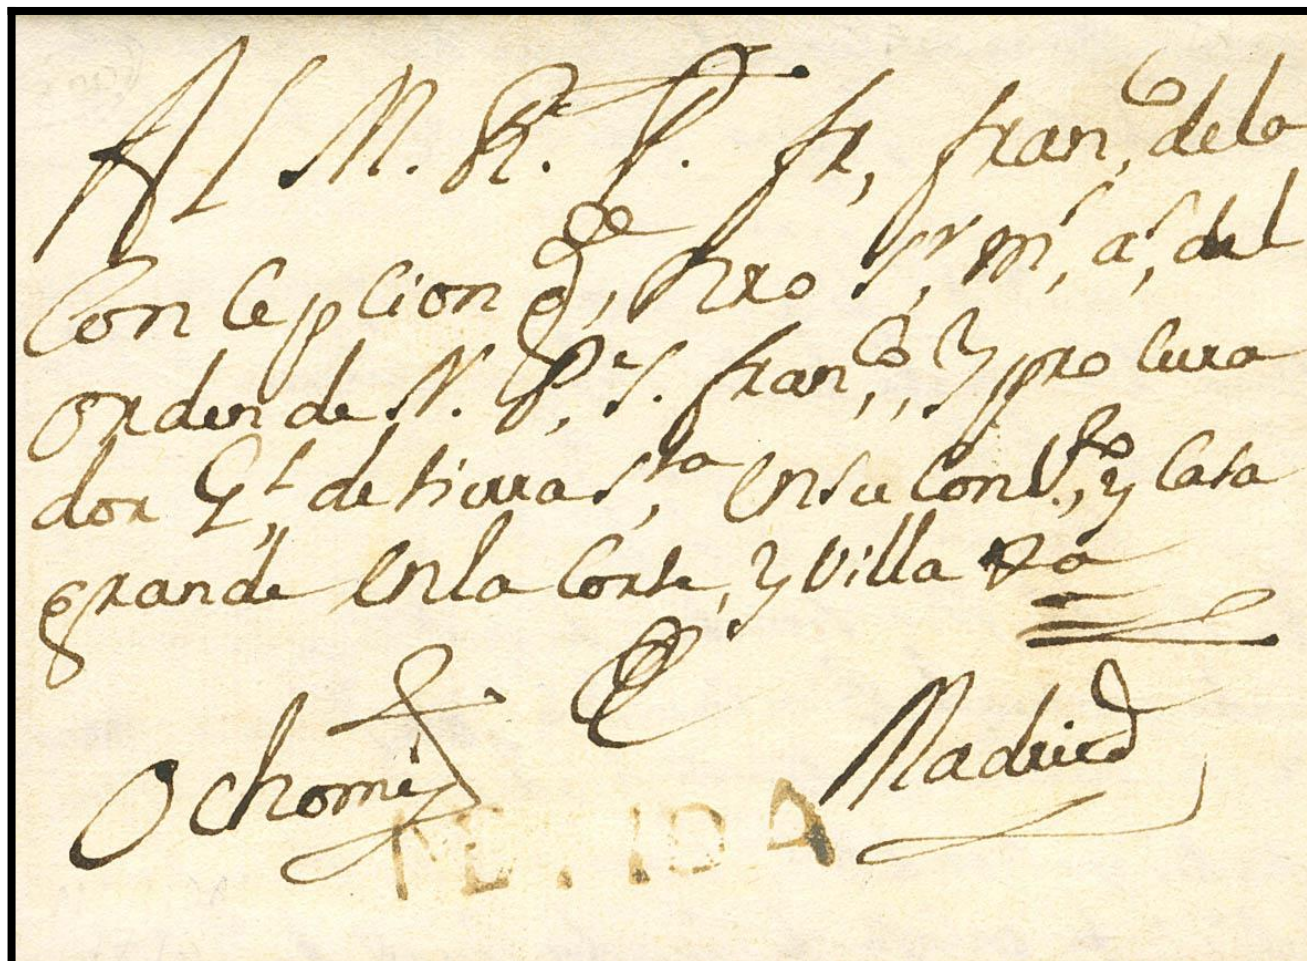 Al M. R. P. fr, fran,co dela
Concepcion gde, Nro Sr, ms, as, del
orden de N. Pe, S. franco,, y procura
dor Gl, de tierra Sta, en su Convto, y Casa
grande en la Corte, y villa
Ochomi
Madrid